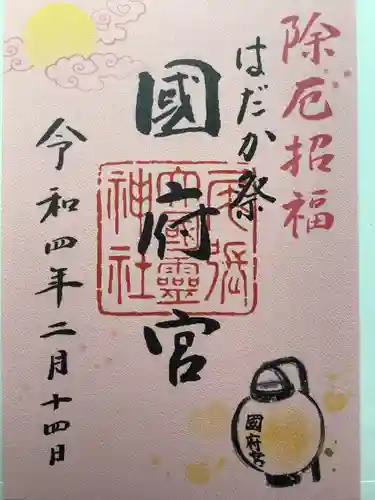 除厄招福
はだか祭
國府宮
尾張
大國霊
神社
令和四年二月十四日
國府宮